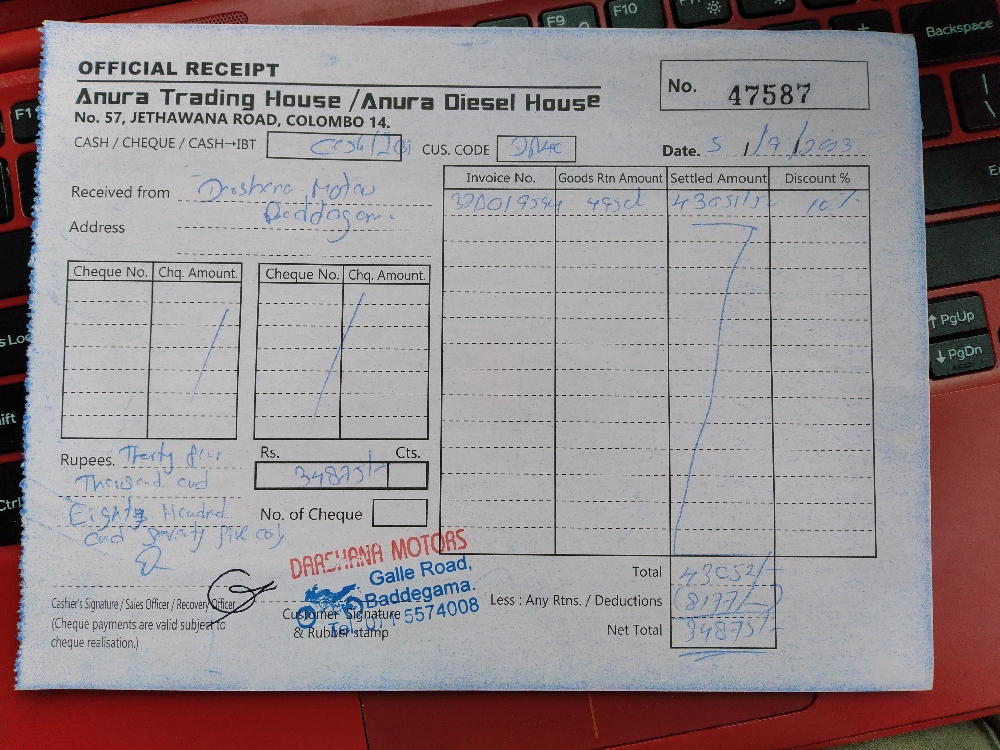 OFFICIAL RECEIPT
Anura Trading House /Anura Diesel House
No. 57, JETHAWANA ROAD, COLOMBO 14.
No. 47587
CASH / CHEQUE / CASH→IBT
CUS. CODE
Date. 5 /9/2023
Received from Darshana Motor
Baddegama
Address
Invoice No. Goods Rtn Amount Settled Amount Discount %
10%
Cheque No. Chq. Amount. Cheque No. Chq. Amount.
Rupees. Therty four
Thousand and
Eighty Hundred
and seventy five
Rs. Cts.
34875/-
No. of Cheque
DARSHANA MOTORS
Galle Road,
Baddegama.
Tel: 077 5574008
Total 43052/-
Less : Any Rtns. / Deductions (8177/-)
Net Total 34875/-
Cashier's Signature / Sales Officer / Recovery Officer
(Cheque payments are valid subject to
cheque realisation.)
Customer Signature
& Rubber stamp
F9
F10
Backspace
PgUp
PgDn
Ctrl